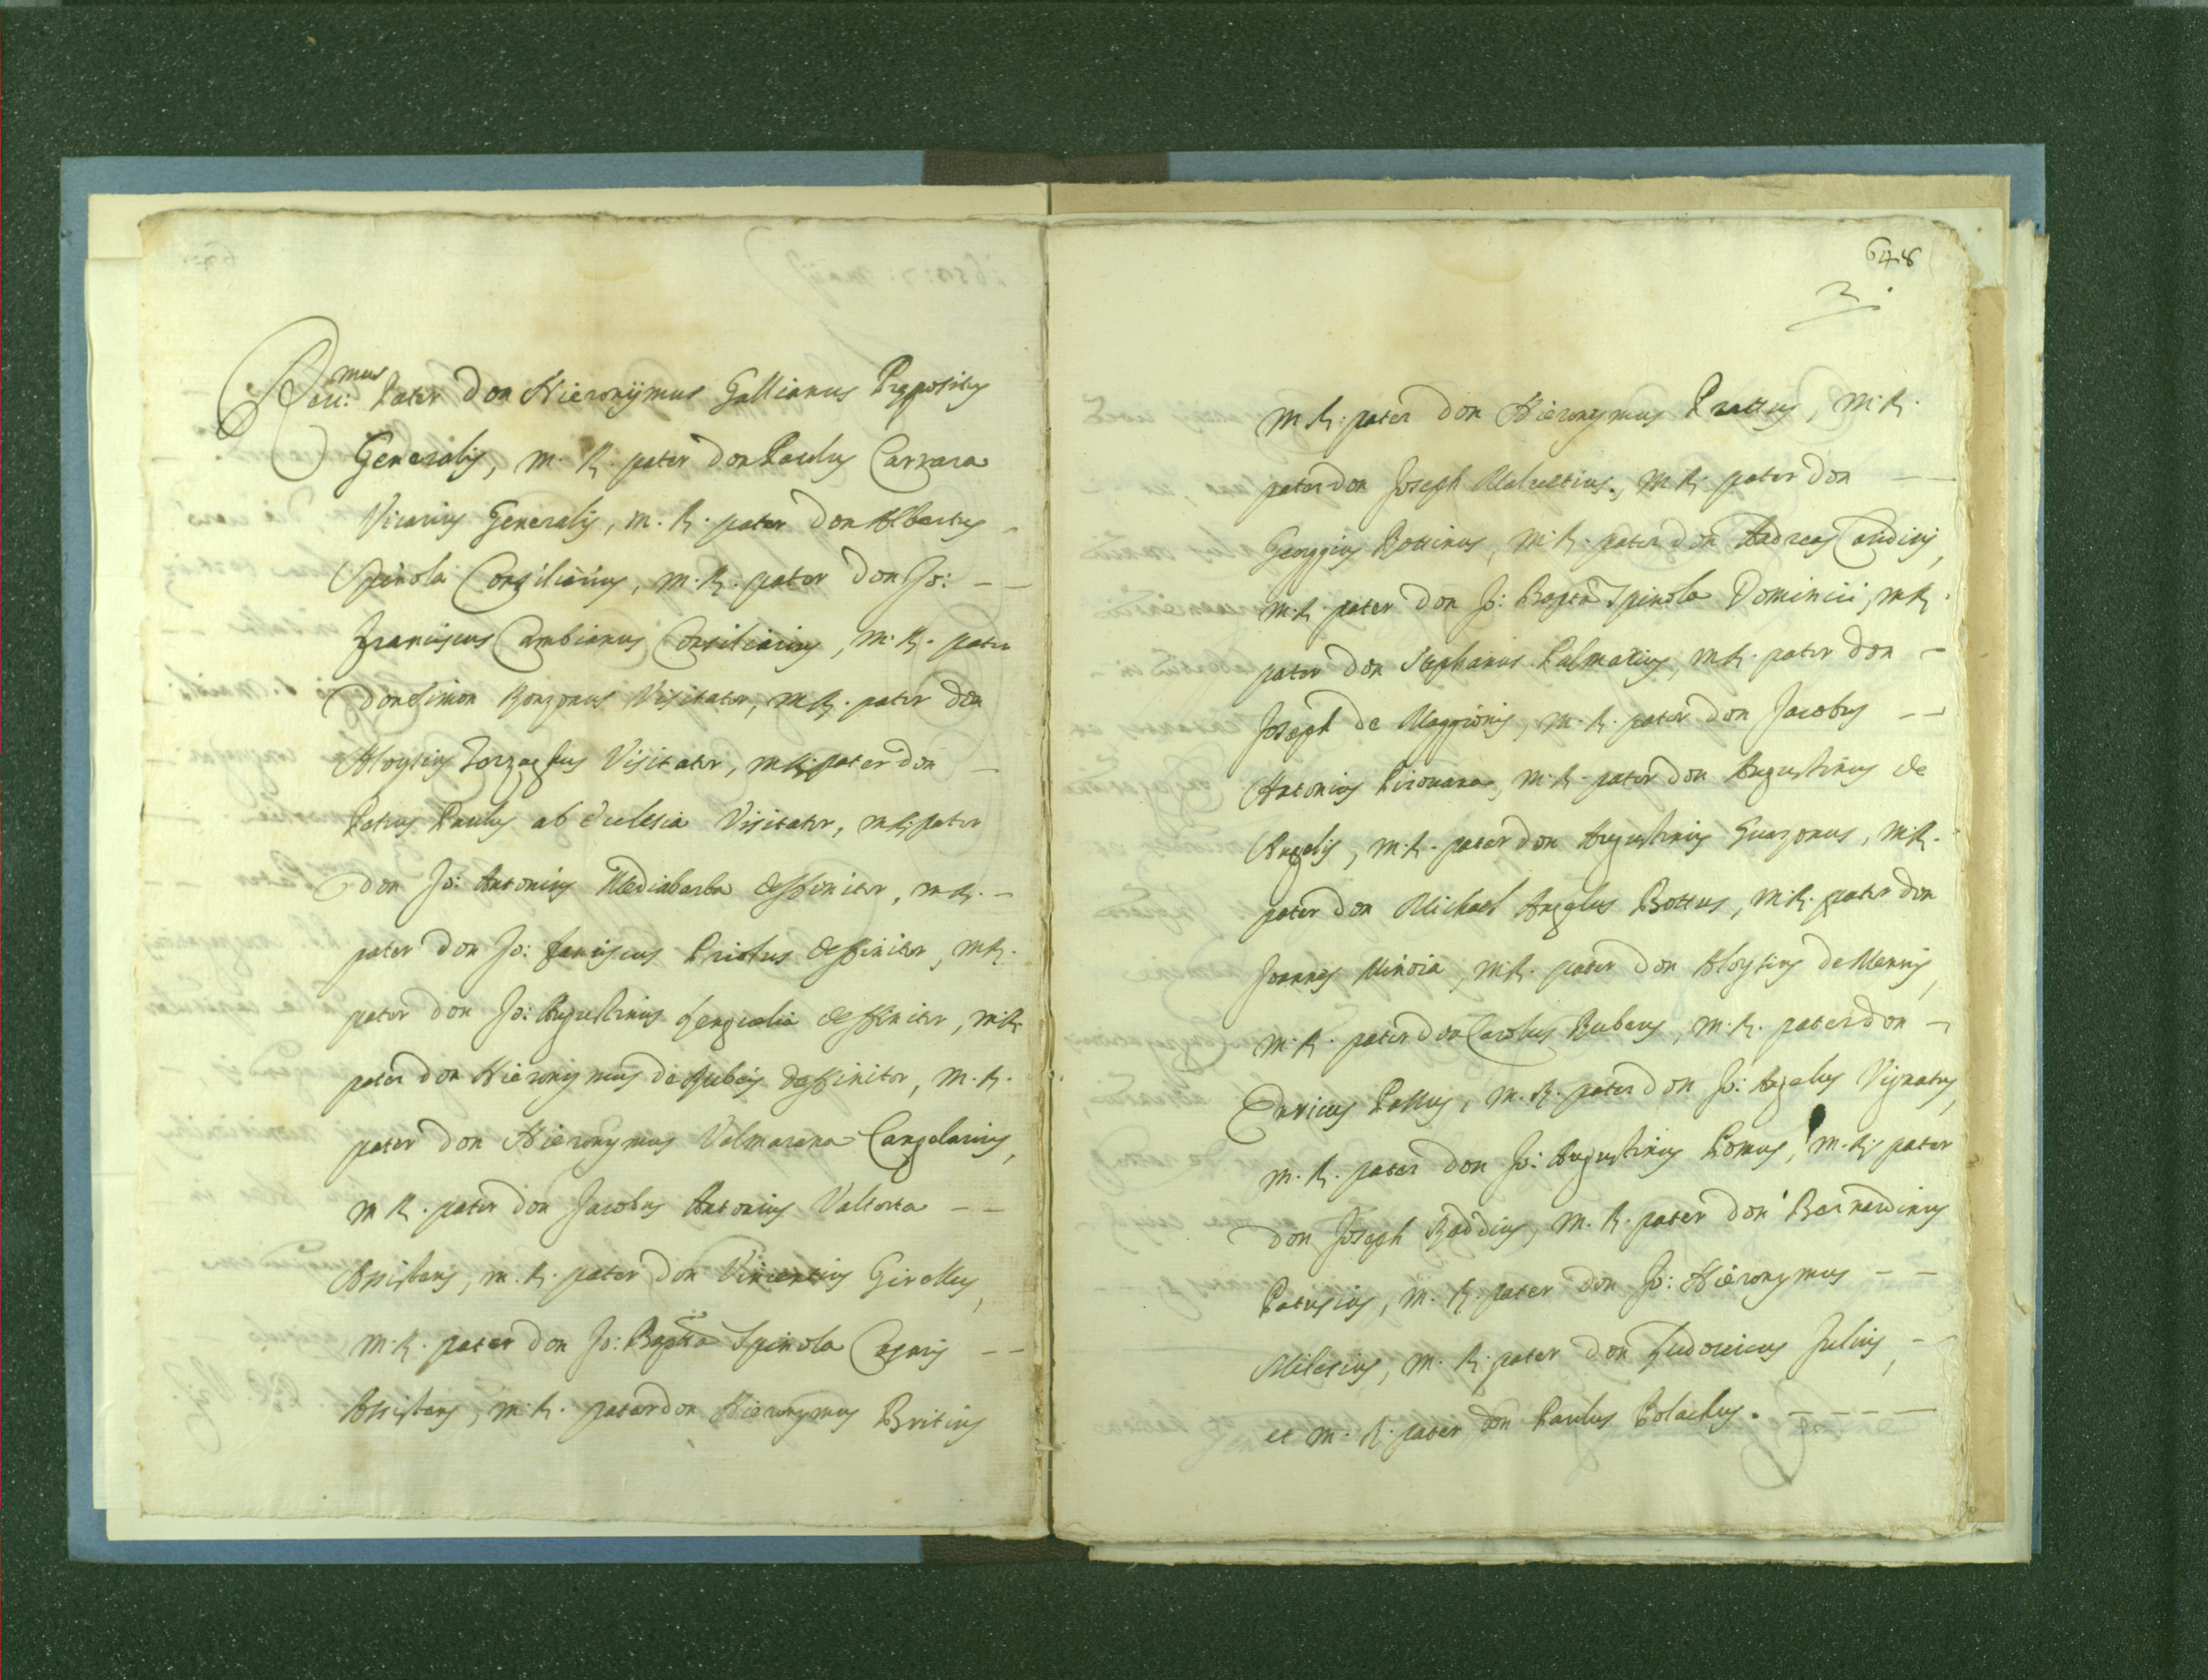 Reu:mus Pater Don Hieronÿmus Gallianus Prępositus
Generalis, m. R. pater Don Paulus Carrara
Vicarius Generalis, m. R. pater Don Albertus -
Spinola Consiliarius, m. R. pater Don Jo: - -
Franciscus Cambianus Consiliarius, m. R. pater
Don Simon Ronzonus Visitator, m R. pater Don
Aloysius Zorzagħus Visitator, m R. pater Don -
Petrus Paulus ab Ecclesia Visitator, m R. pater
Don Jo: Antonius Mediabarba deffinitor, m R. -
pater Don Jo: franciscus Priolus deffinitor, m R.
pater Don Jo: Augustinus deffinitor, m R.
pater Don Hieronymus de Rubeis deffinitor, m. R.
pater Don Hieronymus Valmarana Cangelarius,
m R. pater Don Jacobus Antonius Valtorta - -
Assistens, m. R. pater Don Vincentius Girellus,
m. R. pater Don Jo: Bapta Spinola - -
Assistens, m. R. pater Don Hieronymus Britius
648
3.
m R. pater Don Hieronymus Prottus, m. R.
pater Don Joseph Maluetius, m R. pater Don - -
Georgius Bottinus, m. R. pater Don Andreas Candius,
m. R. pater Don Jo: Bapta Spinola Dominici, m R.
pater Don Stephanus Palmarius, m R. pater Don -
Joseph de Maggionis, m. R. pater Don Jacobus - -
Antonius Pirouana, m. R. pater Don Augustinus de
Angelis, m. R. pater Don Augustinus Guazonus, m. R.
pater Don Michael Angelus Bottus, m. R. pater Don
Joannes Minoia, m R. pater Don Aloysius de Mennis,
m. R. pater Don Carolus Rubeus, m. R. pater Don -
Enricus Pallus, m. R. pater Don Jo: Angelus Vignatus,
m. R. pater Don Jo: Augustinus Pomus, m. R. pater
Don Joseph Roddius, m. R. pater Don Bernardinus
Patusius, m. R. pater Don Jo: Hieronymus - -
Milesius, m. R. pater Don Ludouicus Julius, -
et m. R. pater Don Paulus Polachus. - - - -